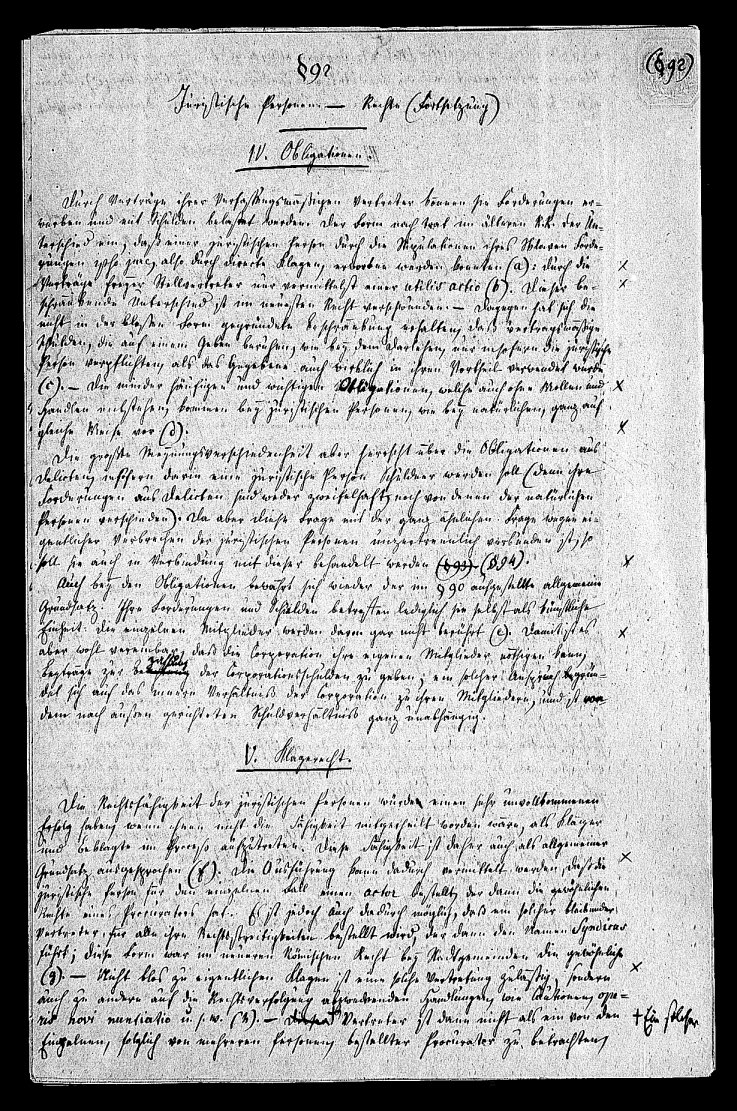 §92
(§92)
Juristische Personen. — Rechte (Fortsetzung)
IV. Obligationen.
Durch Verträge ihrer verfassungsmäßigen Vertreter können sie Forderungen er-
werben und mit Schulden belastet werden. Der Form nach trat im älteren R.R. der Un-
terschied ein, daß einer juristischen Person durch die Stipulationen ihres Sklaven Forde-
rungen also durch directe Klagen, erworben werden konnten (a): durch die
Verträge freyer Stellvertreter nur vermittelst einer utilis actio (b). Dieser be-
schränkende Unterschied ist im neuesten Recht verschwunden. — Dagegen hat sich die
nicht in der bloßen Form gegründete Beschränkung erhalten, daß vertragsmäßige
Schulden, die auf einem Geben beruhen, wie bey dem Darlehen, nur insofern die juristische
Person verpflichten, als das Gegebene auch wirklich in ihren Vortheil verwendet wurde
(c). — Die minder häufigen und wichtigen Obligationen, welche auch ohne Wollen und
Handlen entstehen, kommen bey juristischen Personen, wie bey natürlichen, ganz auf
gleiche Weise vor (d).
Die größte Meynungsverschiedenheit aber herrscht über die Obligationen aus
Delicten, insofern darin eine juristische Person Schuldner werden soll (denn ihre
Forderungen aus Delicten sind weder zweifelhaft, noch von denen der natürlichen
Personen verschieden). Da aber diese Frage mit der ganz ähnlichen Frage wegen ei-
gentlicher Verbrechen der juristischen Personen unzertrennlich verbunden ist, so
soll sie auch in Verbindung mit dieser behandelt werden (§93) (§94).
Auch bey den Obligationen bewährt sich wieder der im §90 aufgestellte allgemeine
Grundsatz: Ihre Forderungen und Schulden betreffen lediglich sie selbst als künstliche
Einheit: die einzelnen Mitglieder werden davon gar nicht berührt (e). Damit ist es
aber wohl vereinbar, daß die Corporation ihre eigenen Mitglieder nöthigen kann,
Beyträge zur Bezahlung der Corporationsschulden zu geben; ein solcher Anspruch begrün-
det sich auf das innere Verhältniß der Corporation zu ihren Mitgliedern, und ist von
dem nach außen gerichteten Schuldverhältniß ganz unabhängig.
V. Klagerecht.
Die Rechtsfähigkeit der juristischen Personen würde einen sehr unvollkommenen
Erfolg haben, wenn ihnen nicht die Fähigkeit mitgetheilt worden wäre, als Kläger
und Beklagte im Proceß aufzutreten. Diese Fähigkeit ist daher auch als allgemeiner
Grundsatz ausgesprochen (f). Die Ausführung kann dadurch vermittelt werden, daß die
juristische Person für den einzelnen Fall einen actor bestellt, der dann die gewöhnlichen
Rechte eines Procurators hat. Es ist jedoch auch dadurch möglich, daß ein solcher bleibender
Vertreter für alle ihre Rechtsstreitigkeiten bestellt wird, der dann den Namen Syndicus
führt; diese Form war im neueren Römischen Recht bey Stadtgemeinden die gewöhnliche
(g). — Nicht blos zu eigentlichen Klagen ist eine solche Vertretung zulässig, sondern
auch zu andern auf die Rechtsverfolgung abzweckenden Handlungen, wie Cautionen, ope-
ris novi nunciatio u. s. w. (h). — Dieser Vertreter ist dann nicht als ein von den
+ Ein solcher
Einzelnen, folglich von mehreren Personen, bestellter Procurator zu betrachten,